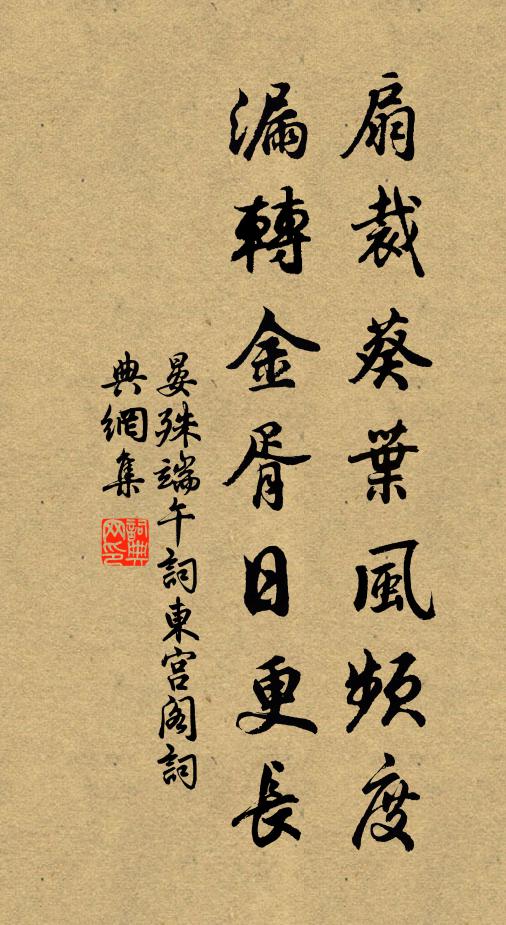 扇裁葵葉風頻度
漏轉金胥日更長
晏殊端午詞東宮閣詞
典網集
詞典网印